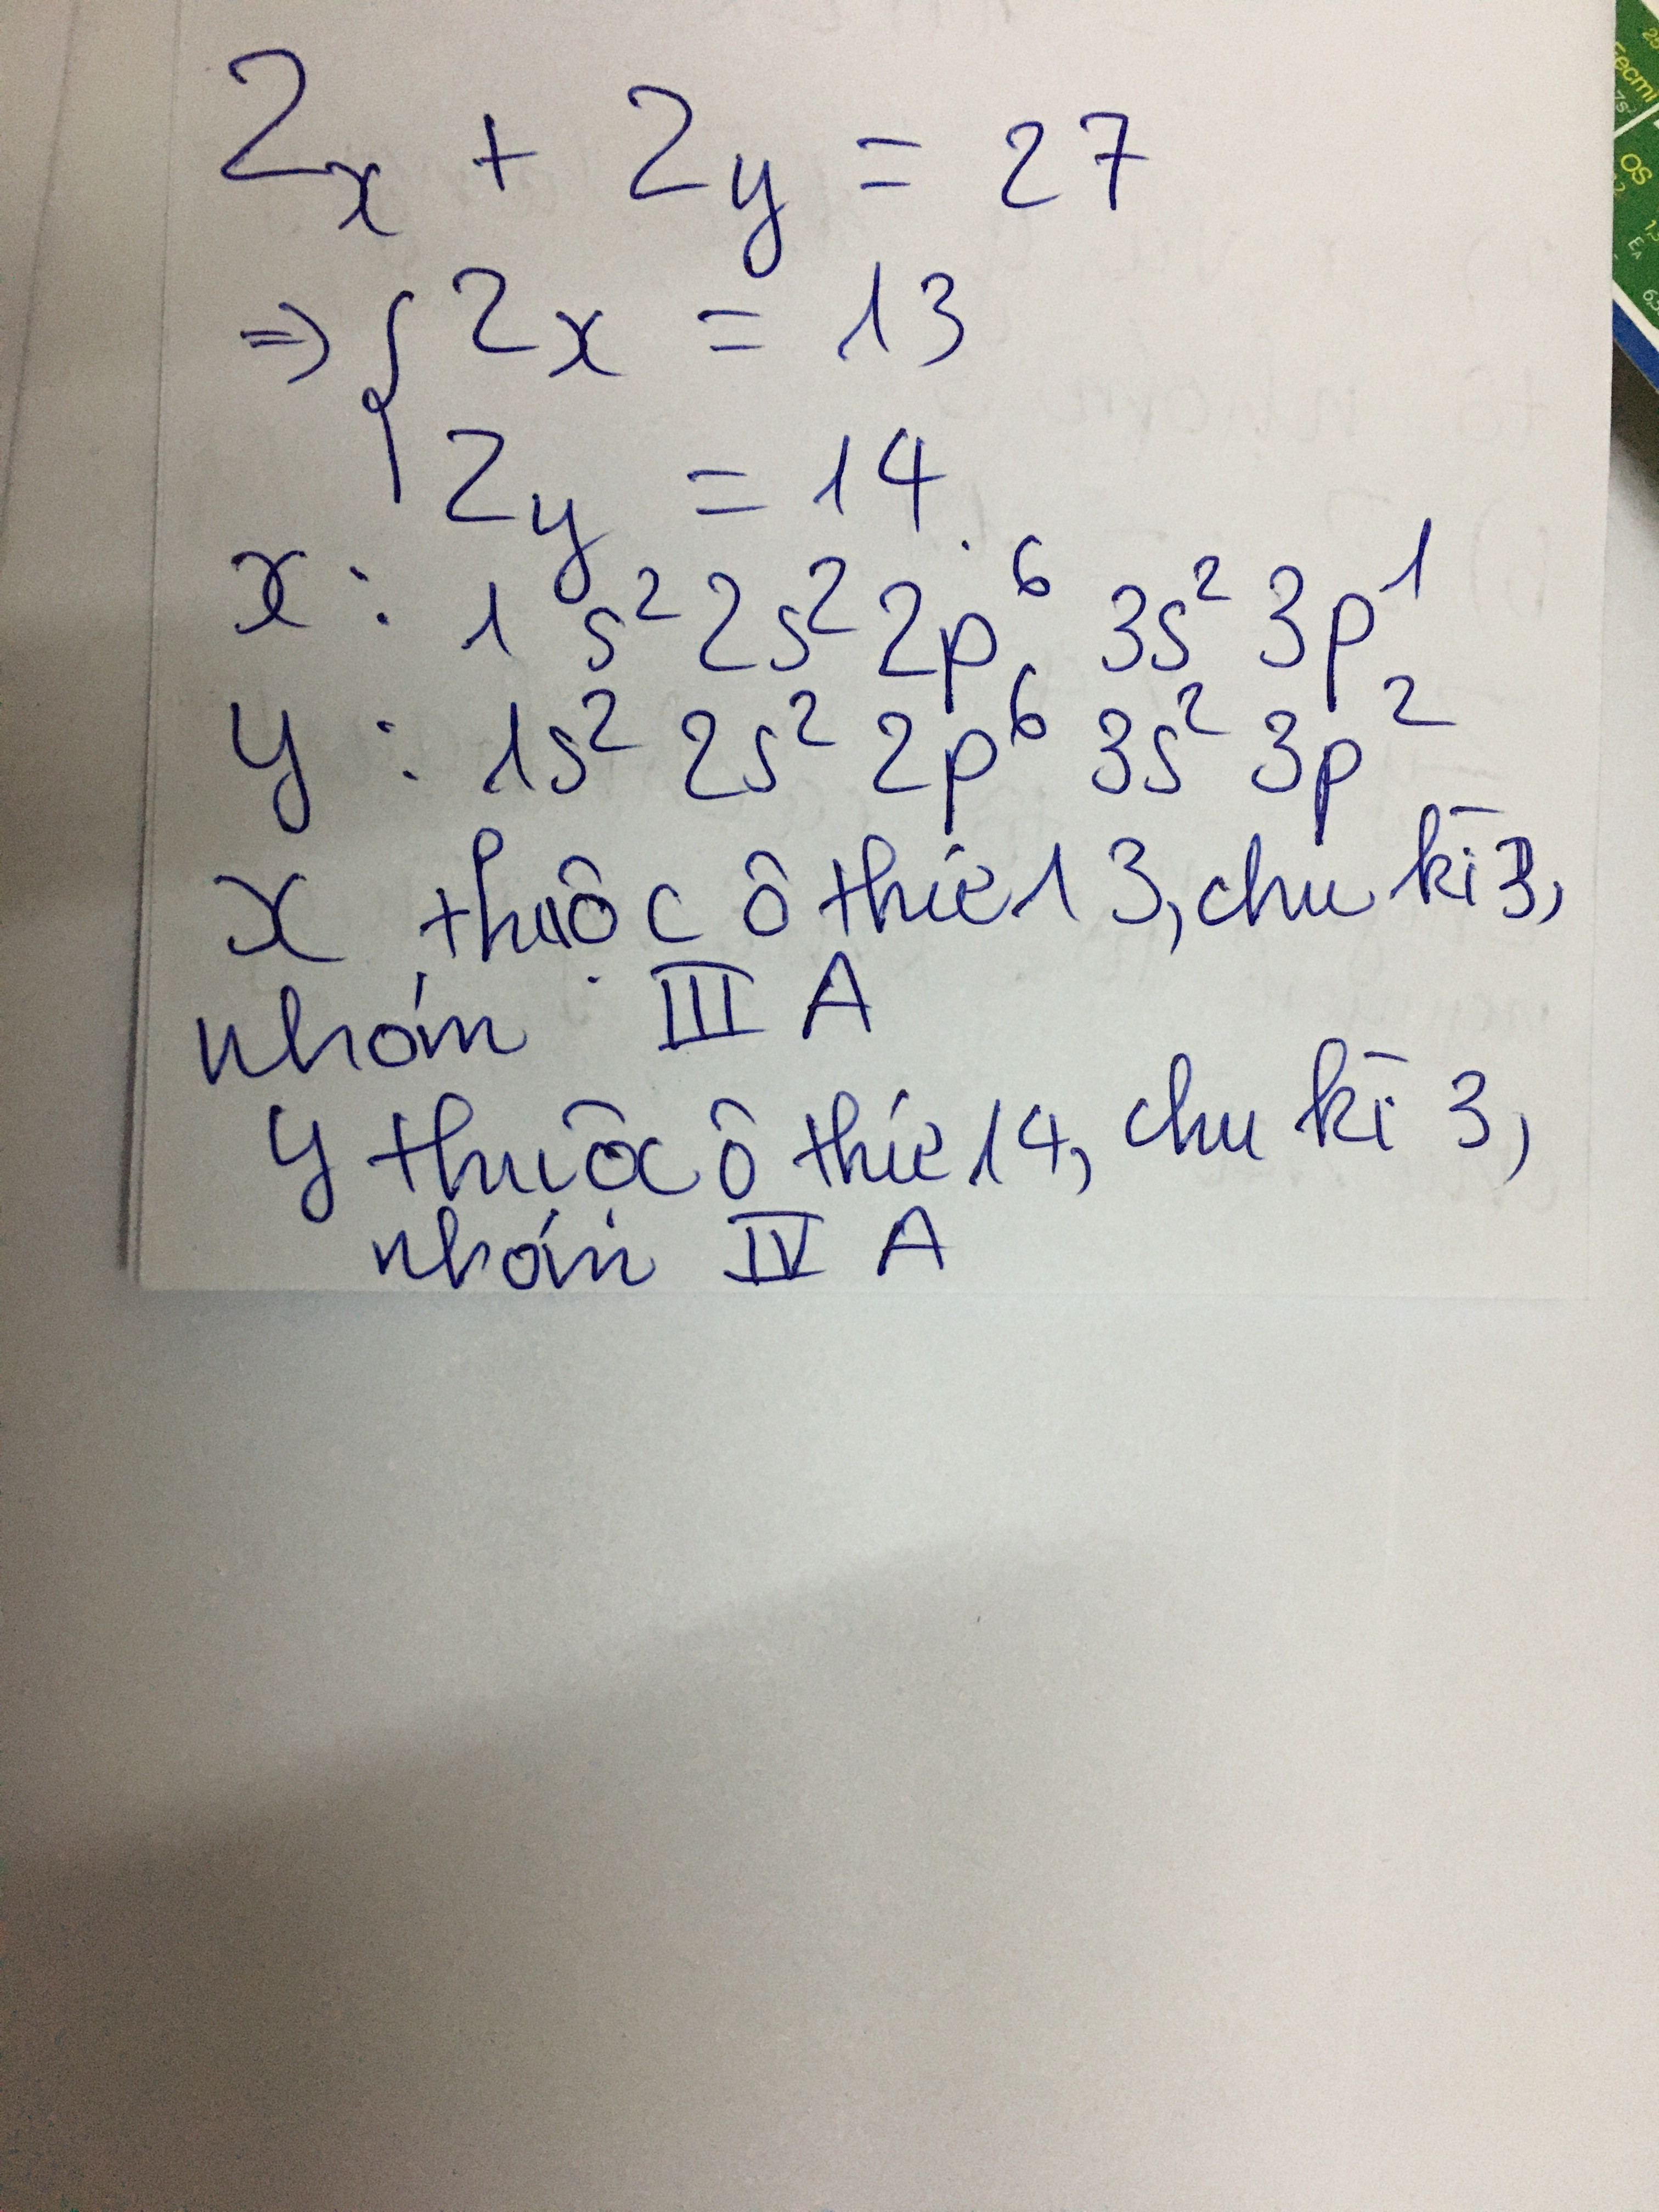 Zx + Zy = 27
=> { Zx = 13
Zy = 14
x : 1s² 2s² 2p⁶ 3s² 3p¹
y : 1s² 2s² 2p⁶ 3s² 3p²
x thuộc ô thứ 13, chu kì 3,
nhóm III A
y thuộc ô thứ 14, chu kì 3,
nhóm IV A
Fecmi
OS